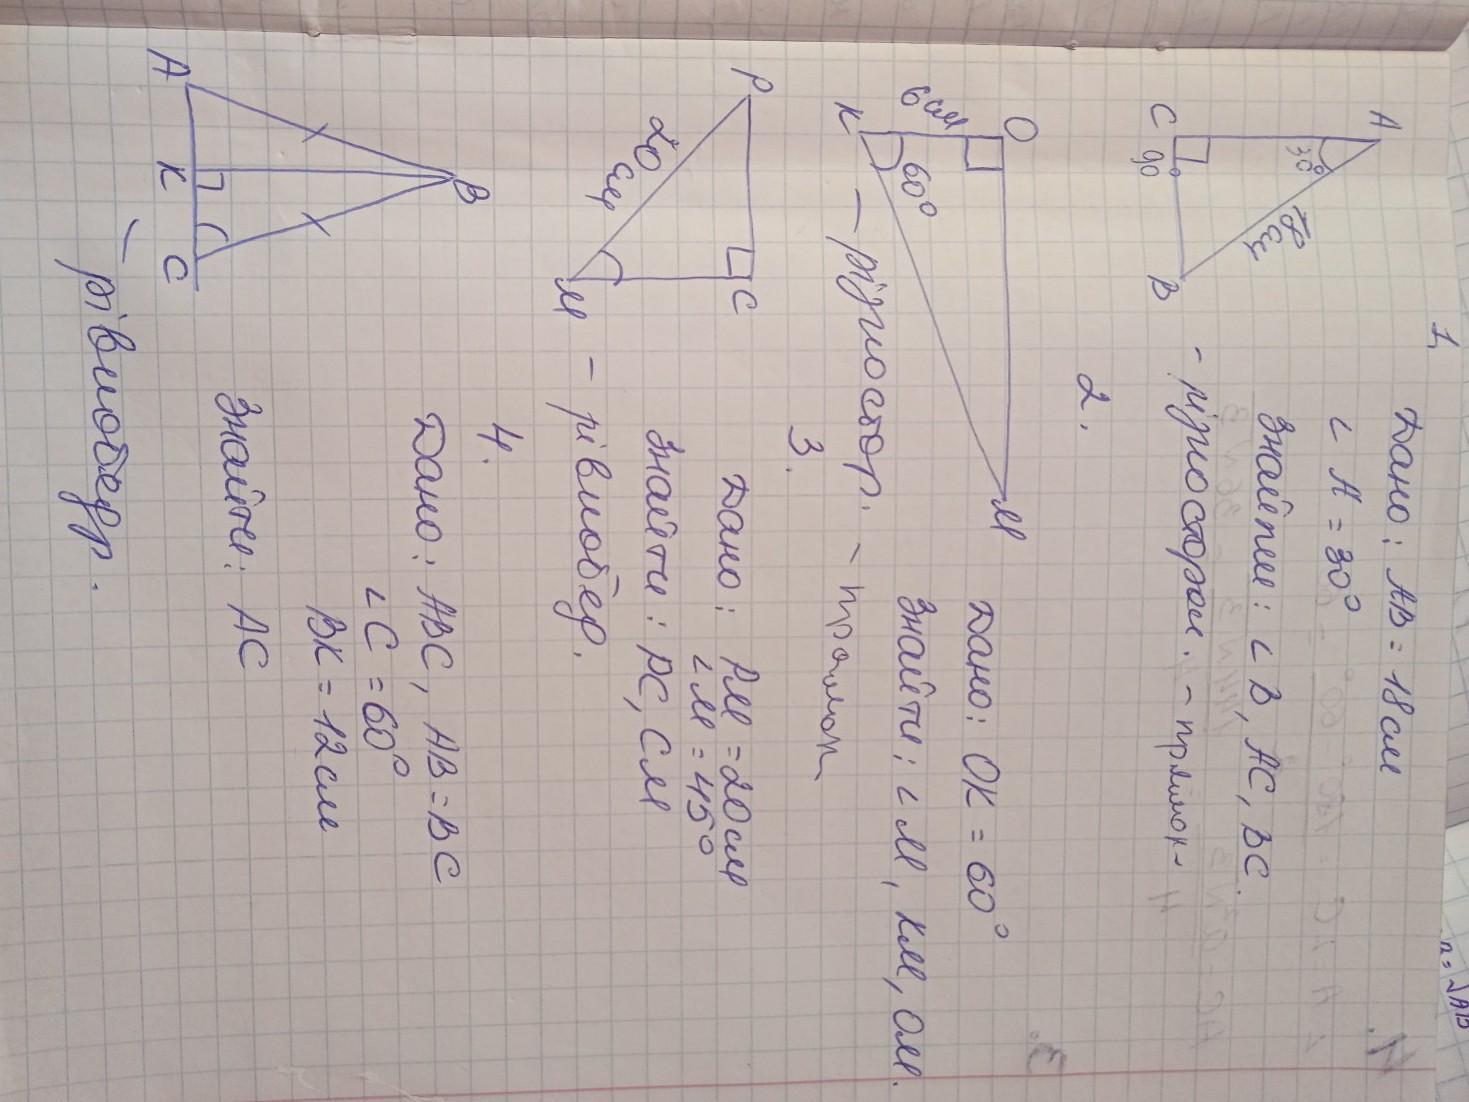 1,
Дано: AB = 18 см
∠ A = 30°
Знайти: ∠ B, AC, BC.
- різносторон. - прямок
A
30°
18 см
C
90°
B
2.
Дано: OK = 60°
Знайти: ∠ M, KM, OM.
- різностор. - прямок
O
6 см
K
60°
M
3.
Дано: PM = 20 см
∠M = 45°
Знайти: PC, CM
- рівнобер.
P
20 см
C
M
4.
Дано: ABC, AB = BC
∠C = 60°
BK = 12 см
Знайти: AC
- рівнобедр.
A
K
C
B